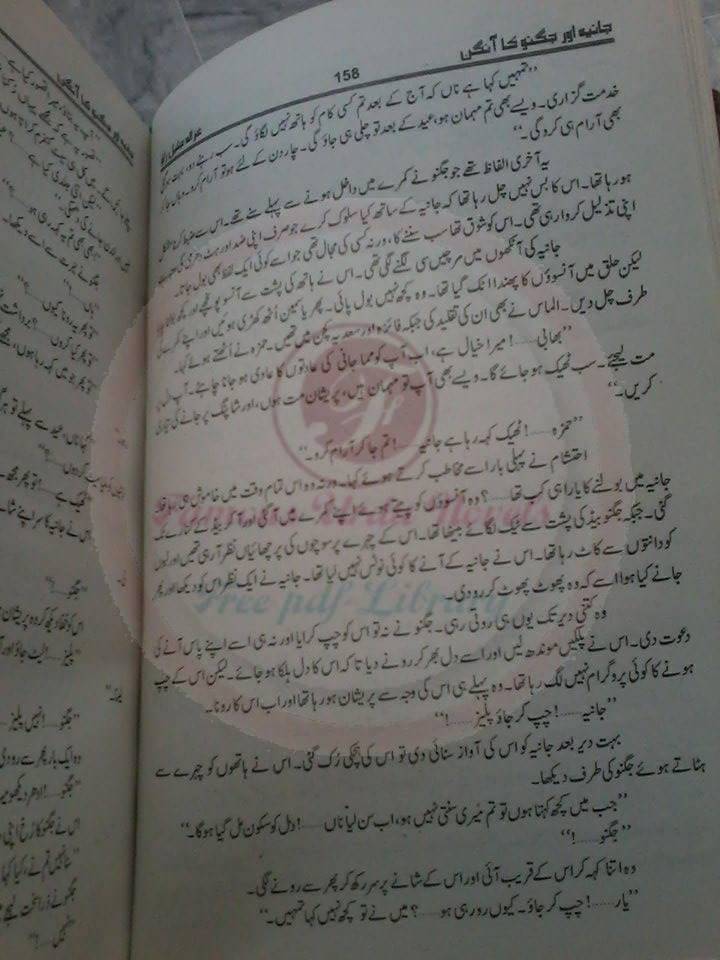 جانیہ اور جگنو کا آنگن
158
”تمہیں کہا ہے ناں کہ آج کے بعد تم کسی کام کو ہاتھ نہیں لگاؤ گی۔ سب رہنے دو، بہت ہو گئی
خدمت گزاری۔ ویسے بھی تم مہمان ہو، عید کے بعد تو چلی ہی جاؤ گی۔ چار دن کے لئے ہو تو آرام کرو۔ وہاں جا کر
بھی آرام ہی کرو گی۔“
یہ آخری الفاظ تھے جو جگنو نے کمرے میں داخل ہونے سے پہلے سنے تھے۔ اس سے ضبط کرنا مشکل
ہو رہا تھا۔ اس کا بس نہیں چل رہا تھا کہ جانیہ کے ساتھ کیا سلوک کرے جو صرف اپنی ضد اور ہٹ دھرمی کی وجہ سے
اپنی تذلیل کروا رہی تھی۔ اس کو شوق تھا سب سننے کا، ورنہ کسی کی مجال تھی جو اسے کوئی ایک لفظ بھی بول جاتا۔
جانیہ کی آنکھوں میں مرچیں سی لگنے لگی تھی۔ اس نے ہاتھ کی پشت سے آنسو پونچھے اور کچھ بولنا چاہا
لیکن حلق میں آنسوؤں کا پھندا اٹک گیا تھا۔ وہ کچھ نہیں بول پائی۔ پھر یاسمین اُٹھ کھڑی ہوئیں اور اپنے کمرے کی
طرف چل دیں۔ الماس نے بھی ان کی تقلید کی جبکہ فائزہ اور سعدیہ کچن میں تھیں۔ حمزہ نے اُٹھتے ہوئے کہا۔
”بھابی......! میرا خیال ہے، اب آپ کو مما جانی کی عادتوں کا عادی ہو جانا چاہئے۔ آپ دل پر
مت لیجئے۔ سب ٹھیک ہو جائے گا۔ ویسے بھی آپ تو مہمان ہیں، پریشان مت ہوں، اور شاپنگ پر جانے کی تیاری
کریں۔“
”حمزہ......! ٹھیک کہہ رہا ہے جانیہ......! تم جا کر آرام کرو۔“
احتشام نے پہلی بار اسے مخاطب کرتے ہوئے کہا۔ ورنہ وہ اس تمام وقت میں خاموش ہی رہا تھا۔
جانیہ میں بولنے کا یارا ہی کب تھا......؟ وہ آنسوؤں کو پیتے ہوئے اپنے کمرے میں آ گئی اور آ کر بیڈ کے کنارے ٹک
گئی۔ جبکہ جگنو بیڈ کی پشت سے ٹیک لگائے بیٹھا تھا۔ اس کے چہرے پر سوچوں کی پرچھائیاں نظر آ رہی تھیں اور لبوں
کو دانتوں سے کاٹ رہا تھا۔ اس نے جانیہ کے آنے کا کوئی نوٹس نہیں لیا تھا۔ جانیہ نے ایک نظر اس کو دیکھا اور پھر
جانے کیا ہوا اسے کہ وہ پھوٹ پھوٹ کر رو دی۔
وہ کتنی دیر تک یوں ہی روتی رہی۔ جگنو نے نہ تو اس کو چپ کرایا اور نہ ہی اسے اپنے پاس آنے کی
دعوت دی۔ اس نے پلکیں موندھ لیں اور اسے دل بھر کر رونے دیا تا کہ اس کا دل ہلکا ہو جائے۔ لیکن اس کے چپ
ہونے کا کوئی پروگرام نہیں لگ رہا تھا۔ وہ پہلے ہی اس کی وجہ سے پریشان ہو رہا تھا اور اب اس کا رونا۔
”جانیہ......! چپ کر جاؤ پلیز......!“
بہت دیر بعد جانیہ کو اس کی آواز سنائی دی تو اس کی ہچکی رُک گئی۔ اس نے ہاتھوں کو چہرے سے
ہٹاتے ہوئے جگنو کی طرف دیکھا۔
”جب میں کچھ کہتا ہوں تو تم میری سنتی نہیں ہو، اب سن لیا ناں......! دل کو سکون مل گیا ہوگا۔“
”جگنو......!“
وہ اتنا کہہ کر اس کے قریب آئی اور اس کے شانے پر سر رکھ کر پھر سے رونے لگی۔
”یار......! چپ کر جاؤ۔ کیوں رو رہی ہو......؟ میں نے تو کچھ نہیں کہا تمہیں۔“
Famous Urdu Novels
Free pdf Library